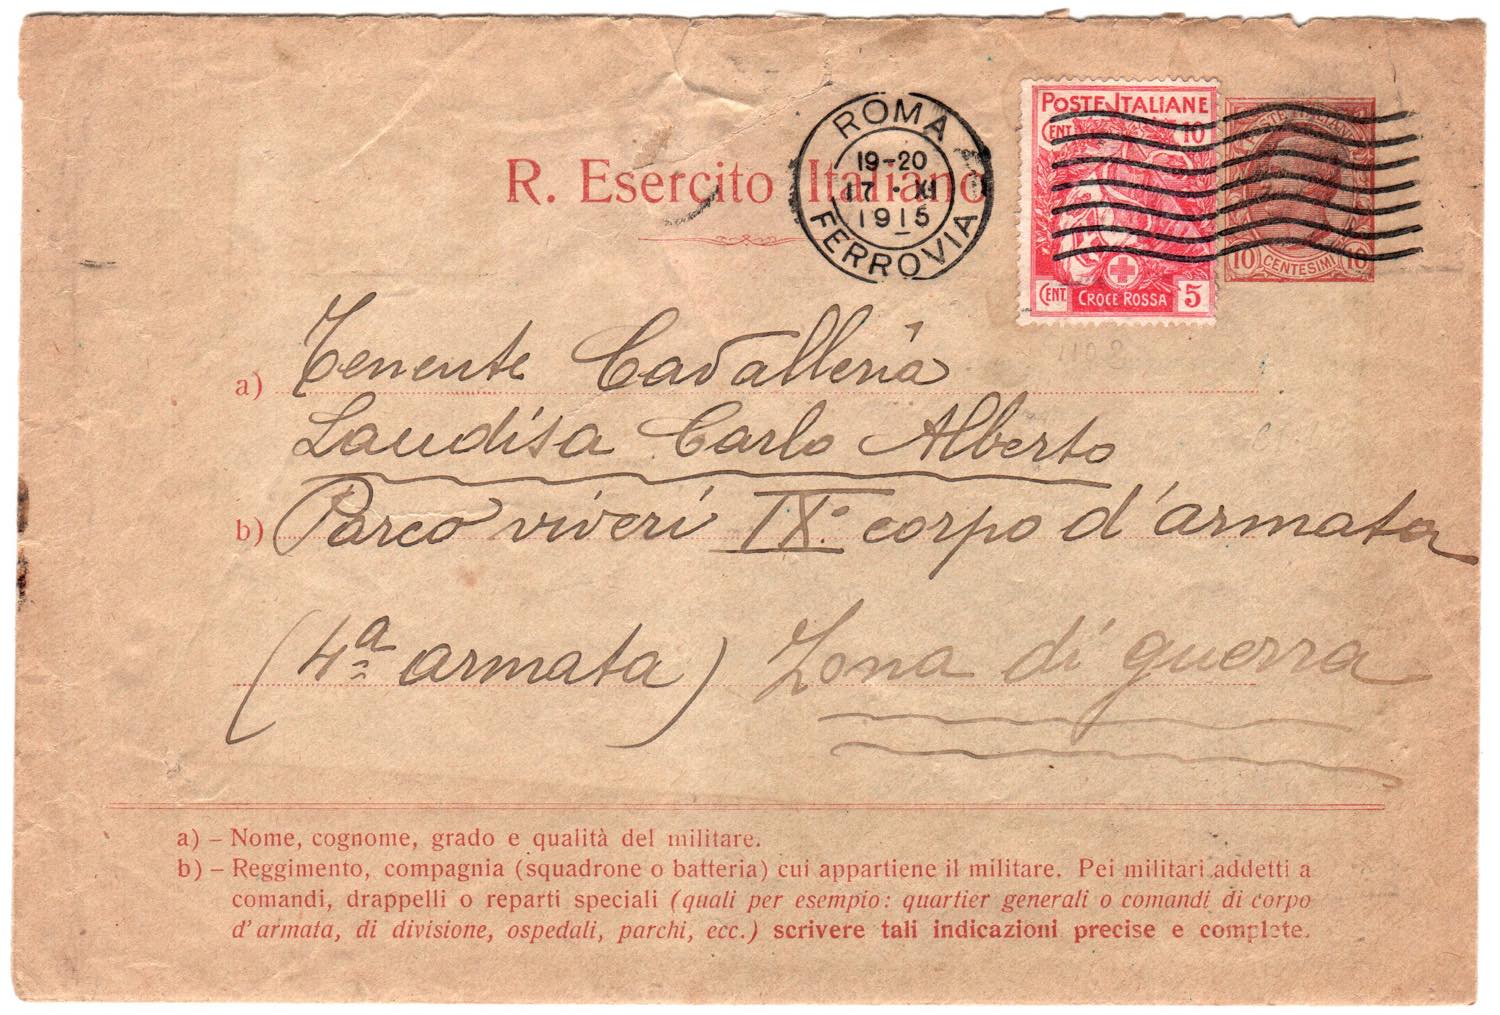 POSTE ITALIANE
CENT 10
CENT CROCE ROSSA 5
10 CENTESIMI 10
ROMA
19-20
17 • XI
1915
FERROVIA
R. Esercito Italiano
a) Tenente Cavalleria
Laudisa Carlo Alberto
b) Parco viveri IX° corpo d'armata
(4ª armata) Zona di guerra
a) – Nome, cognome, grado e qualità del militare.
b) – Reggimento, compagnia (squadrone o batteria) cui appartiene il militare. Pei militari addetti a
comandi, drappelli o reparti speciali (quali per esempio: quartier generali o comandi di corpo
d'armata, di divisione, ospedali, parchi, ecc.) scrivere tali indicazioni precise e complete.